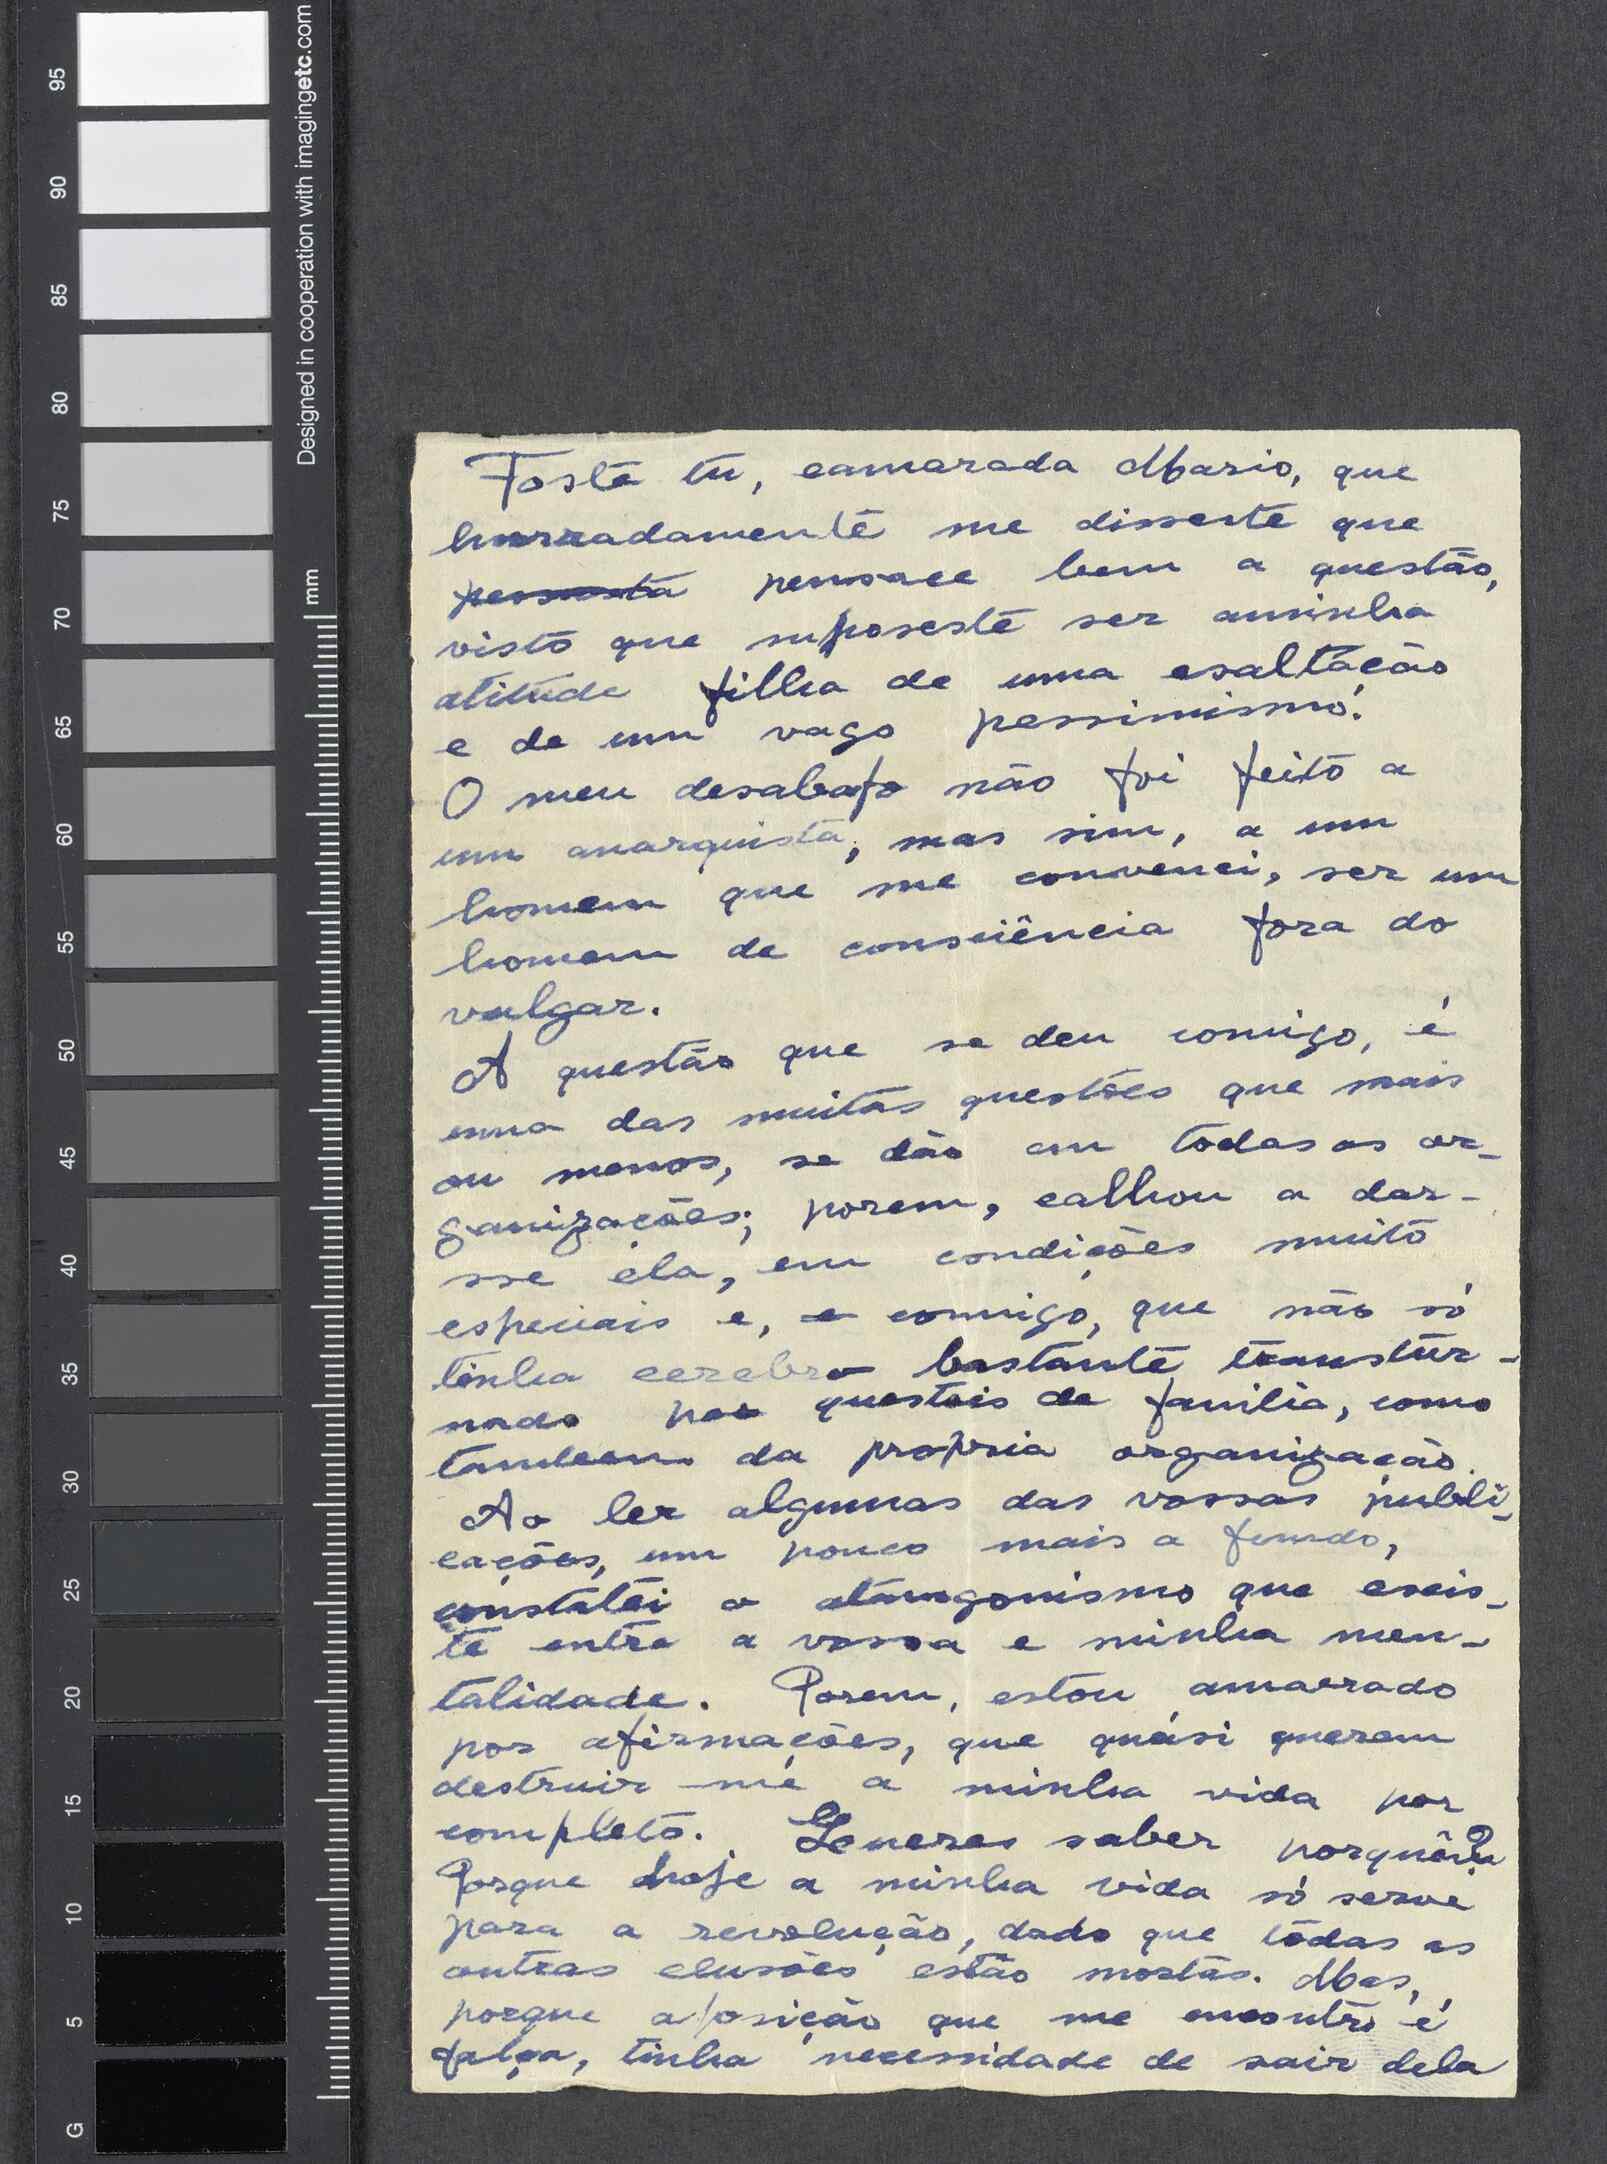 Foste tu, camarada Mario, que
honradamente me disseste que
pensace bem a questão,
visto que suposeste ser aminha
atitude filha de uma esaltação
e de um vago pessimismo!
O meu desabafo não foi feito a
um anarquista, mas sim, a um
homem que me convenci, ser um
homem de consciência fora do
vulgar.
A questão que se deu comigo, é
uma das muitas questões que mais
ou menos, se dão em todas as or-
ganizações; porem, calhou a dar-
sse éla, em condições muito
especiais e, comigo, que não só
tinha cerebro bastante transtor-
nado por questois de familia, como
tambem da propria organização.
Ao ler algumas das vossas publi-
cações, um pouco mais a fundo,
constatei o atangonismo que eseis-
te entre a vossa e minha men-
talidade. Porem, estou amarrado
por afirmações, que quási querem
destruir-me a minha vida por
completo. Queres saber porquê?
Porque hoje a minha vida só serve
para a revolução, dado que tôdas as
outras elusões estão mortas. Mas,
porque aposição que me encontro é
falça, tinha necessidade de sair dela
95
90
85
80
75
70
65
60
55
50
45
40
35
30
25
20
15
10
5
G
mm
Designed in cooperation with imagingetc.com